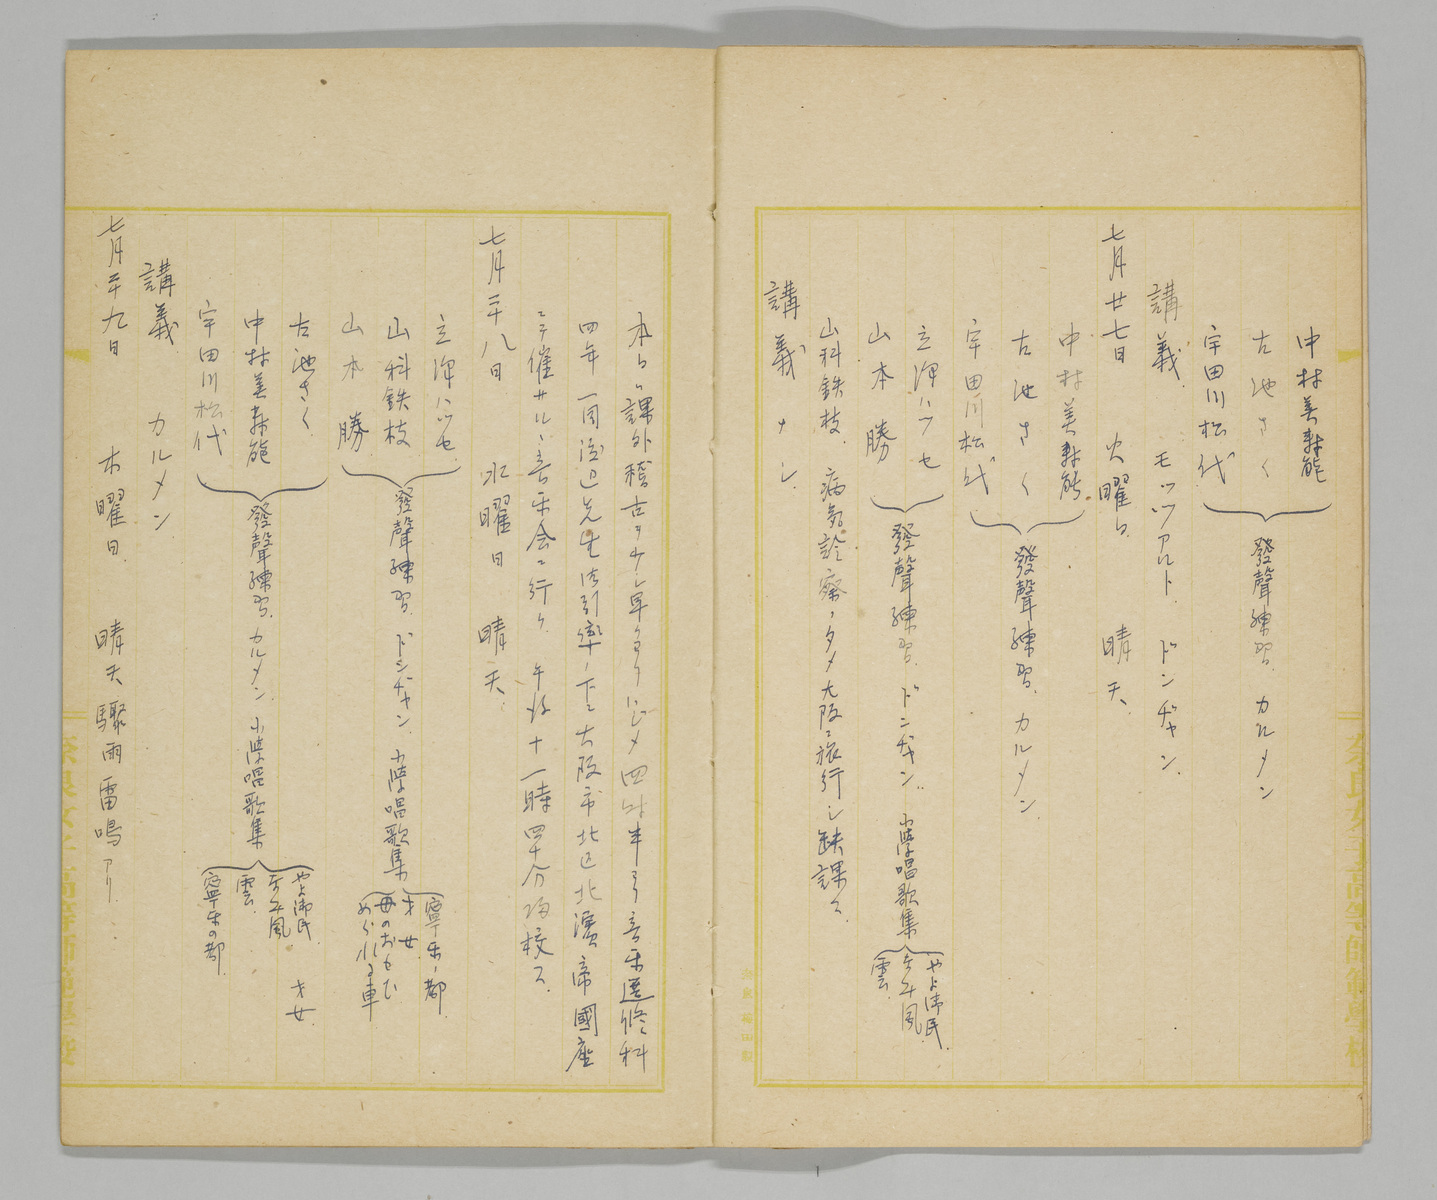 中村美
古池さく
宇田川松代
發聲練習. カルメン
講義. モッツアルト. ドンヂャン.
七月廿七日 火曜日. 晴天.
中村美
古池さく
宇田川松代
發聲練習. カルメン.
立津ハツセ
山本勝
發聲練習. ドンヂャン. 小學唱歌集
やよ御民
あふげ風
雲
山科鉄枝. 病気診察ノタメ大阪ニ旅行シ缺課ス.
講義ナシ.
本日ハ課外稽古ヲ少シ早クヨリハジメ四時半ヨリ音楽選修科
四年一同渡辺先生御引率ノ下ニ大阪市北区北濱帝國座
ニテ催サルヽ音楽会ニ行ク. 午後十一時四十分帰校ス.
七月二十八日 水曜日 晴天.
立津ハツセ
山科鉄枝
山本勝
發聲練習. ドンヂャン. 小學唱歌集
寧楽ノ都
才女
母のおもひ
めぐれる車
古池さく
中村美
宇田川松代
發聲練習. カルメン. 小學唱歌集
やよ御民 才女
雲
寧楽の都
講義 カルメン
七月二十九日 木曜日. 晴天驟雨雷鳴アリ.
奈良女子高等師範學校